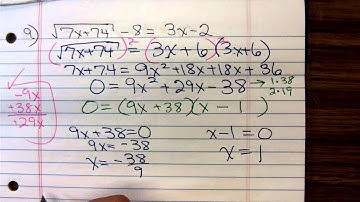 9) √7x+74 - 8 = 3x - 2
(√7x+74)² = (3x + 6)²(3x+6)
7x+74 = 9x² + 18x + 18x + 36
0 = 9x² + 29x - 38 → 1·38
2·19
0 = (9x + 38)(x - 1)
-9x
+38x
+29x
9x + 38 = 0
9x = -38
x = -38
9
x - 1 = 0
x = 1